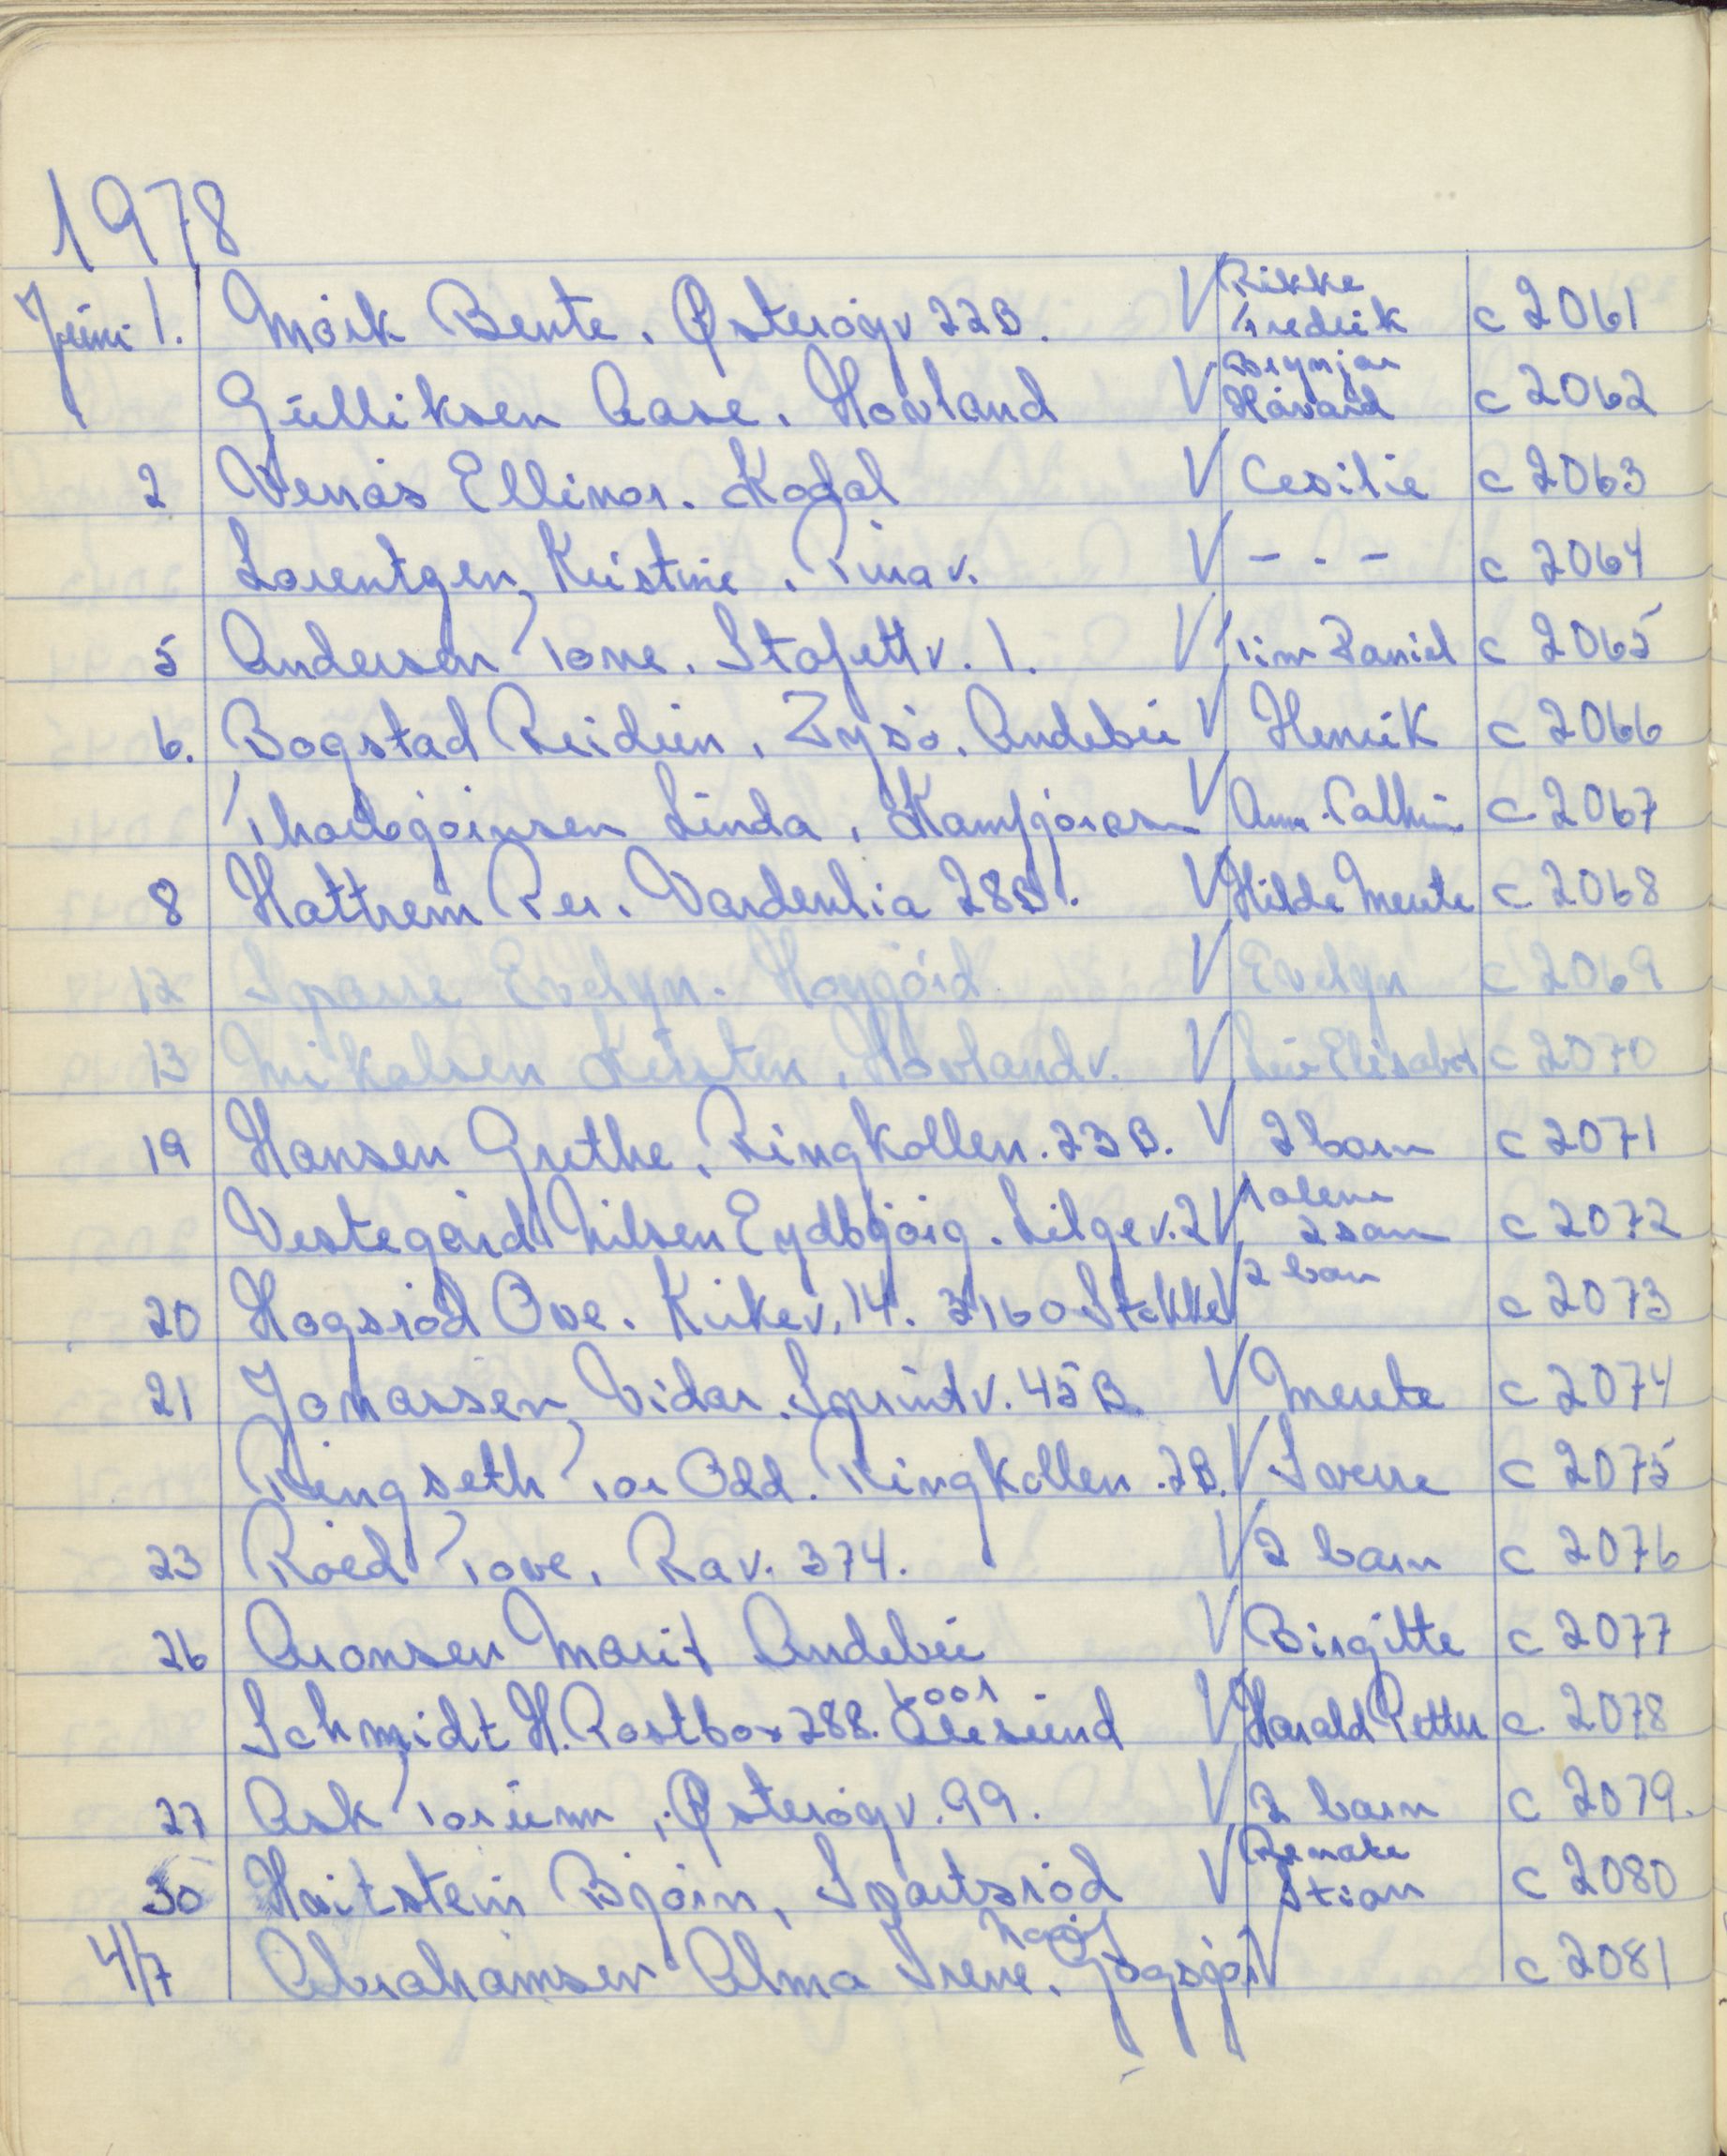 1978
Juni 1. Mørk Bente. Østerøyv 22B. V Rikke Fredrik c 2061
Gulliksen Aase. Hovland V Brynjar Håvard c 2062
2 Venås Ellinor. Kodal V Cesilie c 2063
Lorentzen Kristine. Furuv. V - - - c 2064
5 Andersen Tone. Stafettv. 1. V Tim Daniel c 2065
6. Bogstad Reidun. Dysø. Andebu V Henrik c 2066
Thorbjørnsen Linda. Kamfjordsen V Ann-Cathrin c 2067
8 Hattrem Per. Vardenlia 28B. V Hilde Merete c 2068
12 Sparre Evelyn. Haugård V Evelyn c 2069
13 Mikalsen Kirsten. Hovlandv. V Liv Elisabet c 2070
19 Hansen Grethe. Ringkollen. 23B. V 2 barn c 2071
Vestegård Nilsen Eydbjørg. Liljev. 2 V 2 sam c 2072
20 Høgsrød Ove. Kirkev. 14. 3160 Stokke V 2 barn c 2073
21 Jonassen Vidar. Sprintv. 45B V Merete c 2074
Ringseth Tor Odd. Ringkollen. 2B. V Sverre c 2075
23 Røed Tove. Rav. 374. V 2 barn c 2076
26 Aronsen Marit Andebu V Birgitte c 2077
Schmidt H. Postbox 288. 6001 Ålesund V Harald Petter c 2078
27 Ask Torunn, Østerøyv. 99. V 2 barn c 2079.
30 Haitstein Bjørn, Spartsrød V Renate Stian c 2080
4/7 Abrahamsen Alma Irene. V c 2081